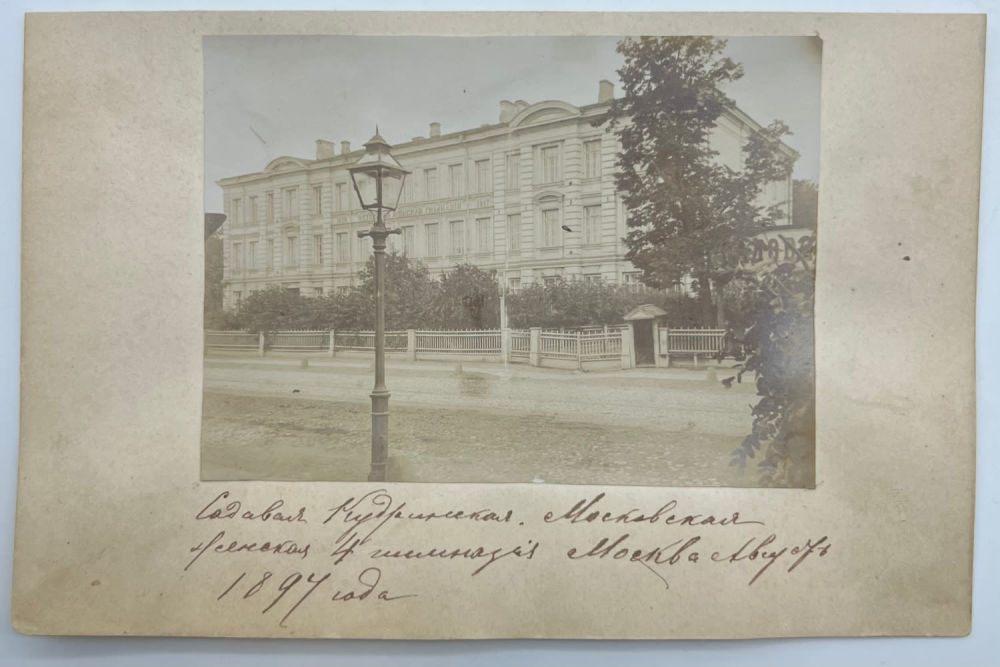 ГИМНАЗІЯ
Садовая Кудринская. Московская
женская 4 гимназія Москва Августъ
1897 года